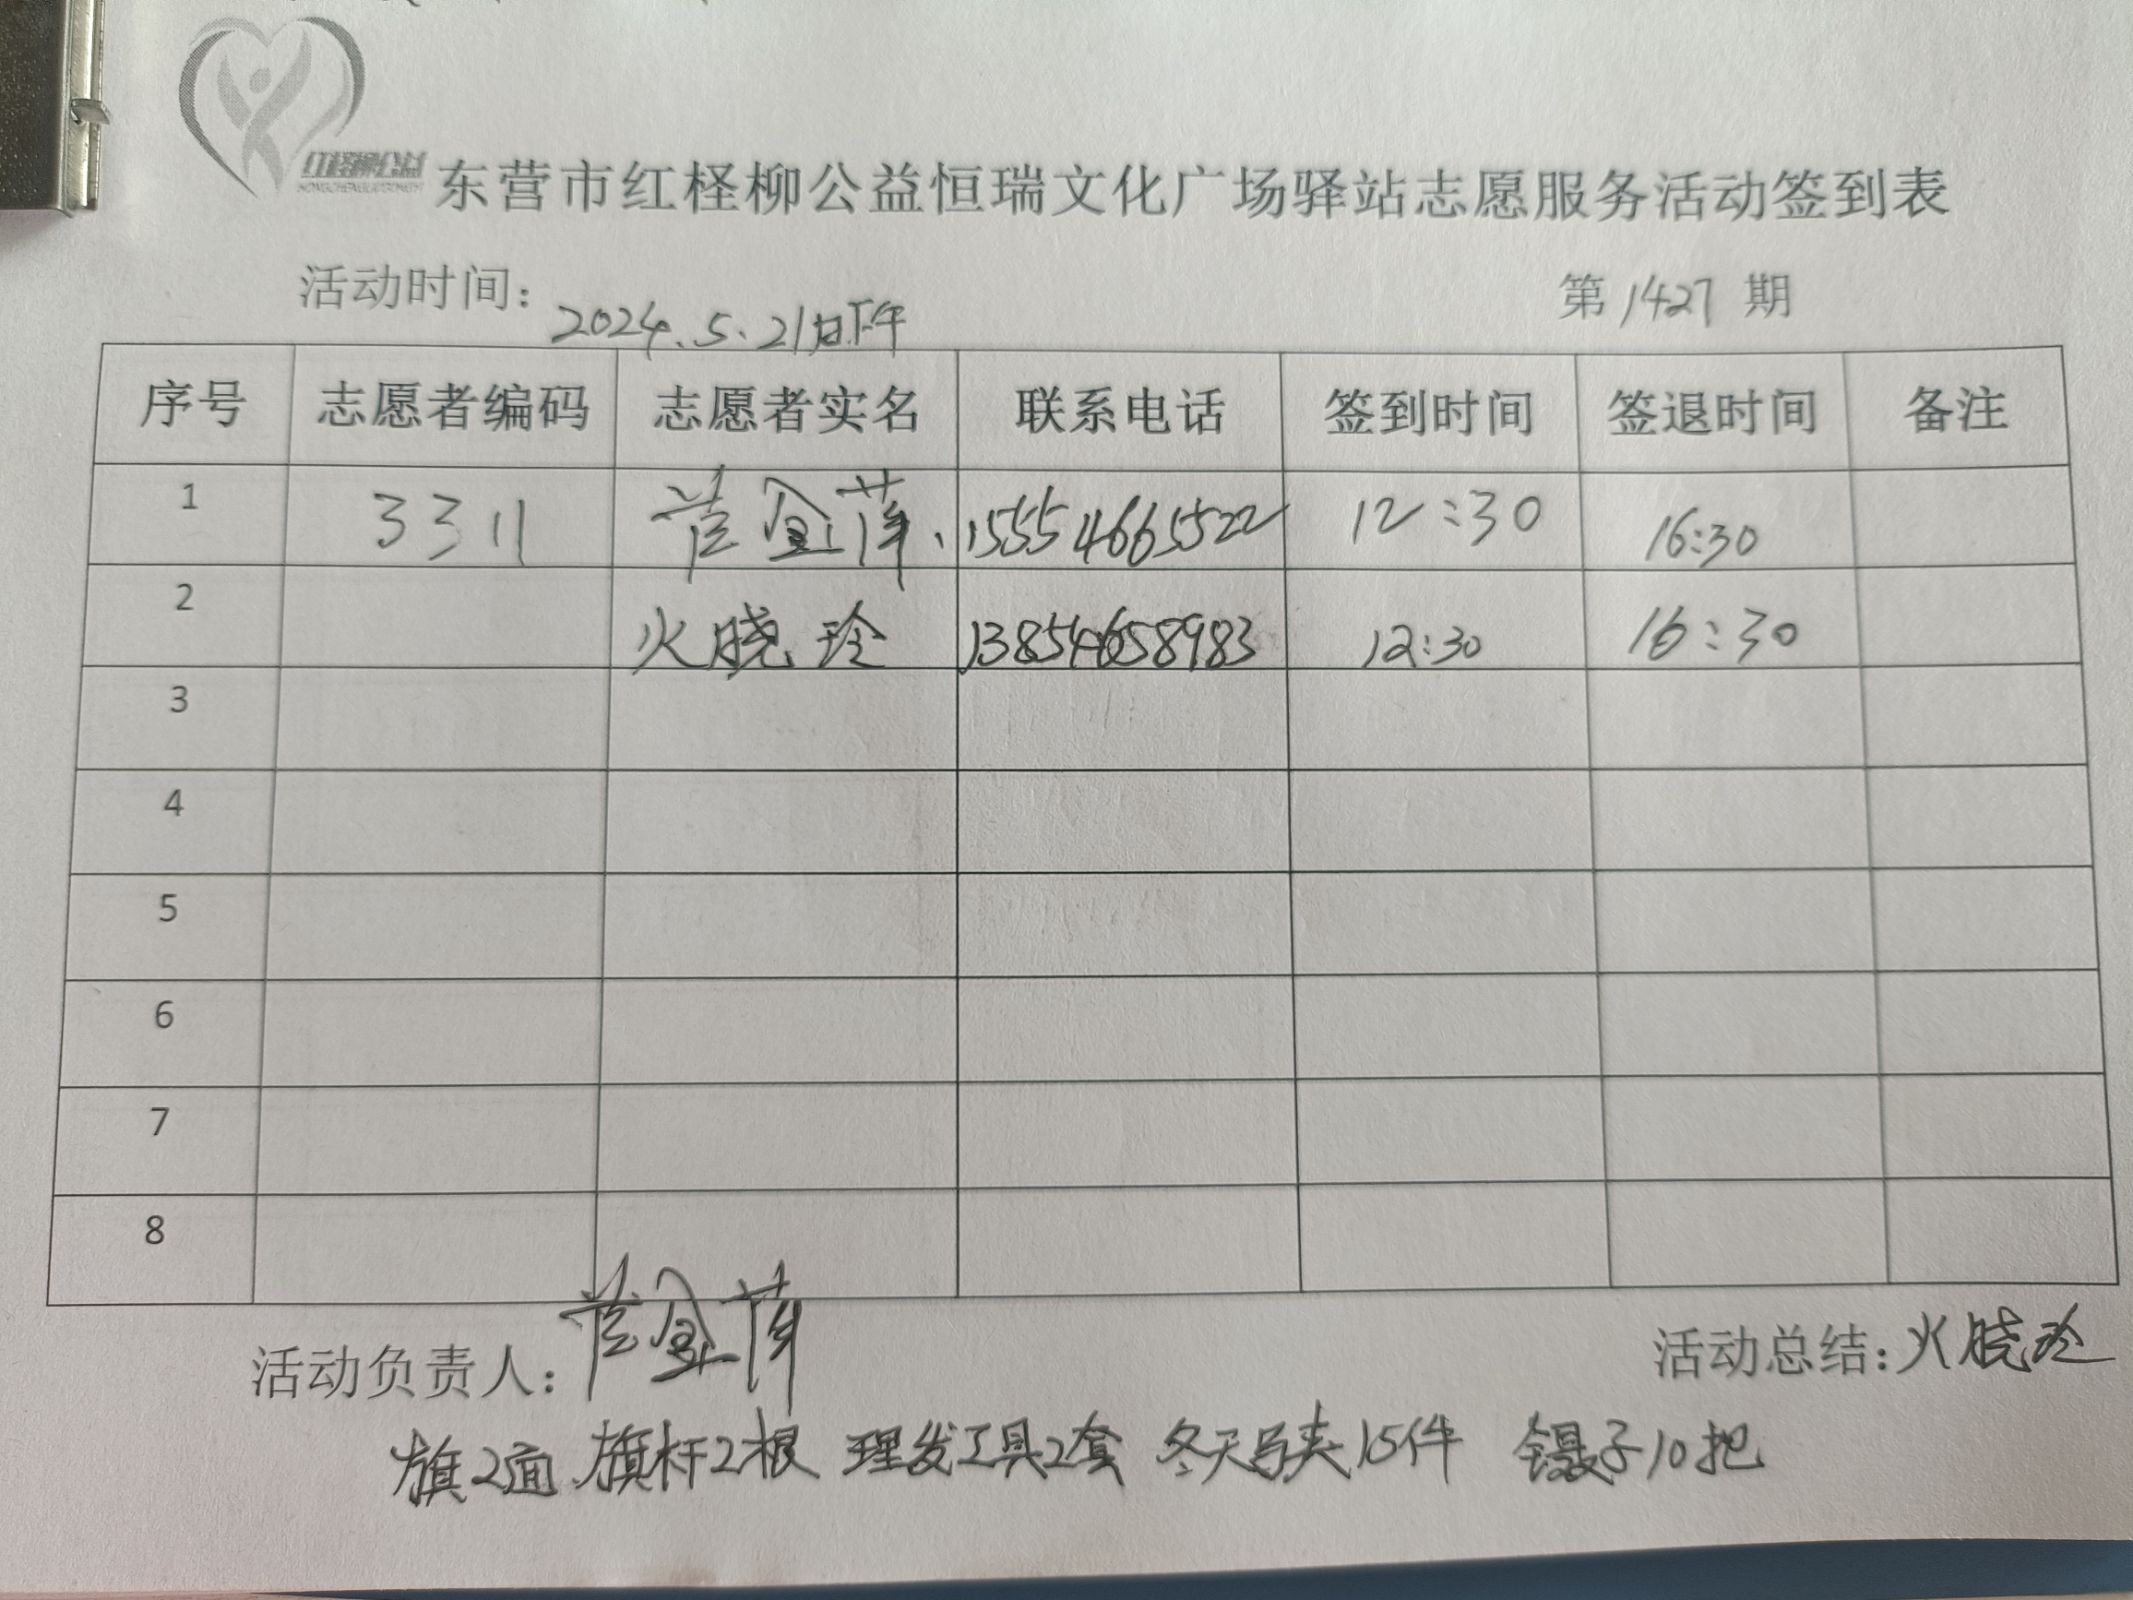 红柽柳公益
东营市红柽柳公益恒瑞文化广场驿站志愿服务活动签到表
活动时间: 2024.5.21日下午 第1427期
序号 志愿者编码 志愿者实名 联系电话 签到时间 签退时间 备注
1 3311 15554665522 12:30 16:30
2 火晓玲 13854658983 12:30 16:30
3
4
5
6
7
8
活动负责人: 活动总结: 火晓玲
旗2面 旗杆2根 理发工具2套 冬天马夹15件 镊子10把